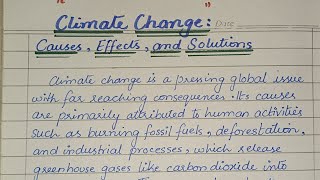 Climate Change:
Causes, Effects, and Solutions
Climate change is a pressing global issue
with far reaching consequences. Its causes
are primarily attributed to human activities
such as burning fossil fuels, deforestation,
and industrial processes, which release
greenhouse gases like carbondioxide into